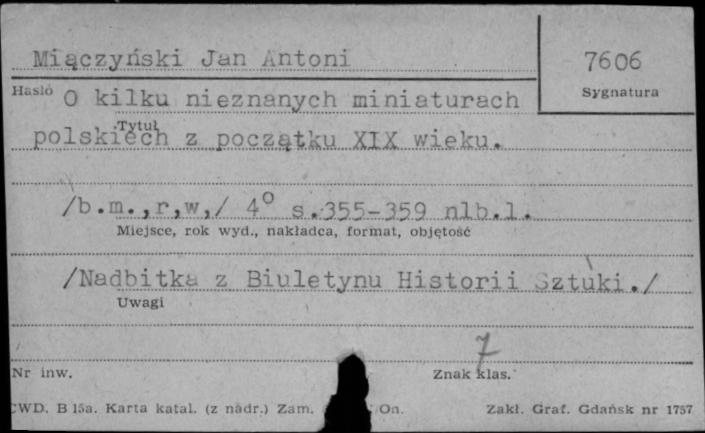 Miączyński Jan Antoni
7606
Sygnatura
Hasło
O kilku nieznanych miniaturach
Tytuł
polskiech z początku XIX wieku.
/b.m.,r,w,/ 4° s.355-359 nlb.l.
Miejsce, rok wyd., nakładca, format, objętość
/Nadbitka z Biuletynu Historii Sztuki./
Uwagi
7
Nr inw.
Znak klas.
CWD. B 15a. Karta katal. (z nadr.) Zam. On. Zakł. Graf. Gdańsk nr 1757